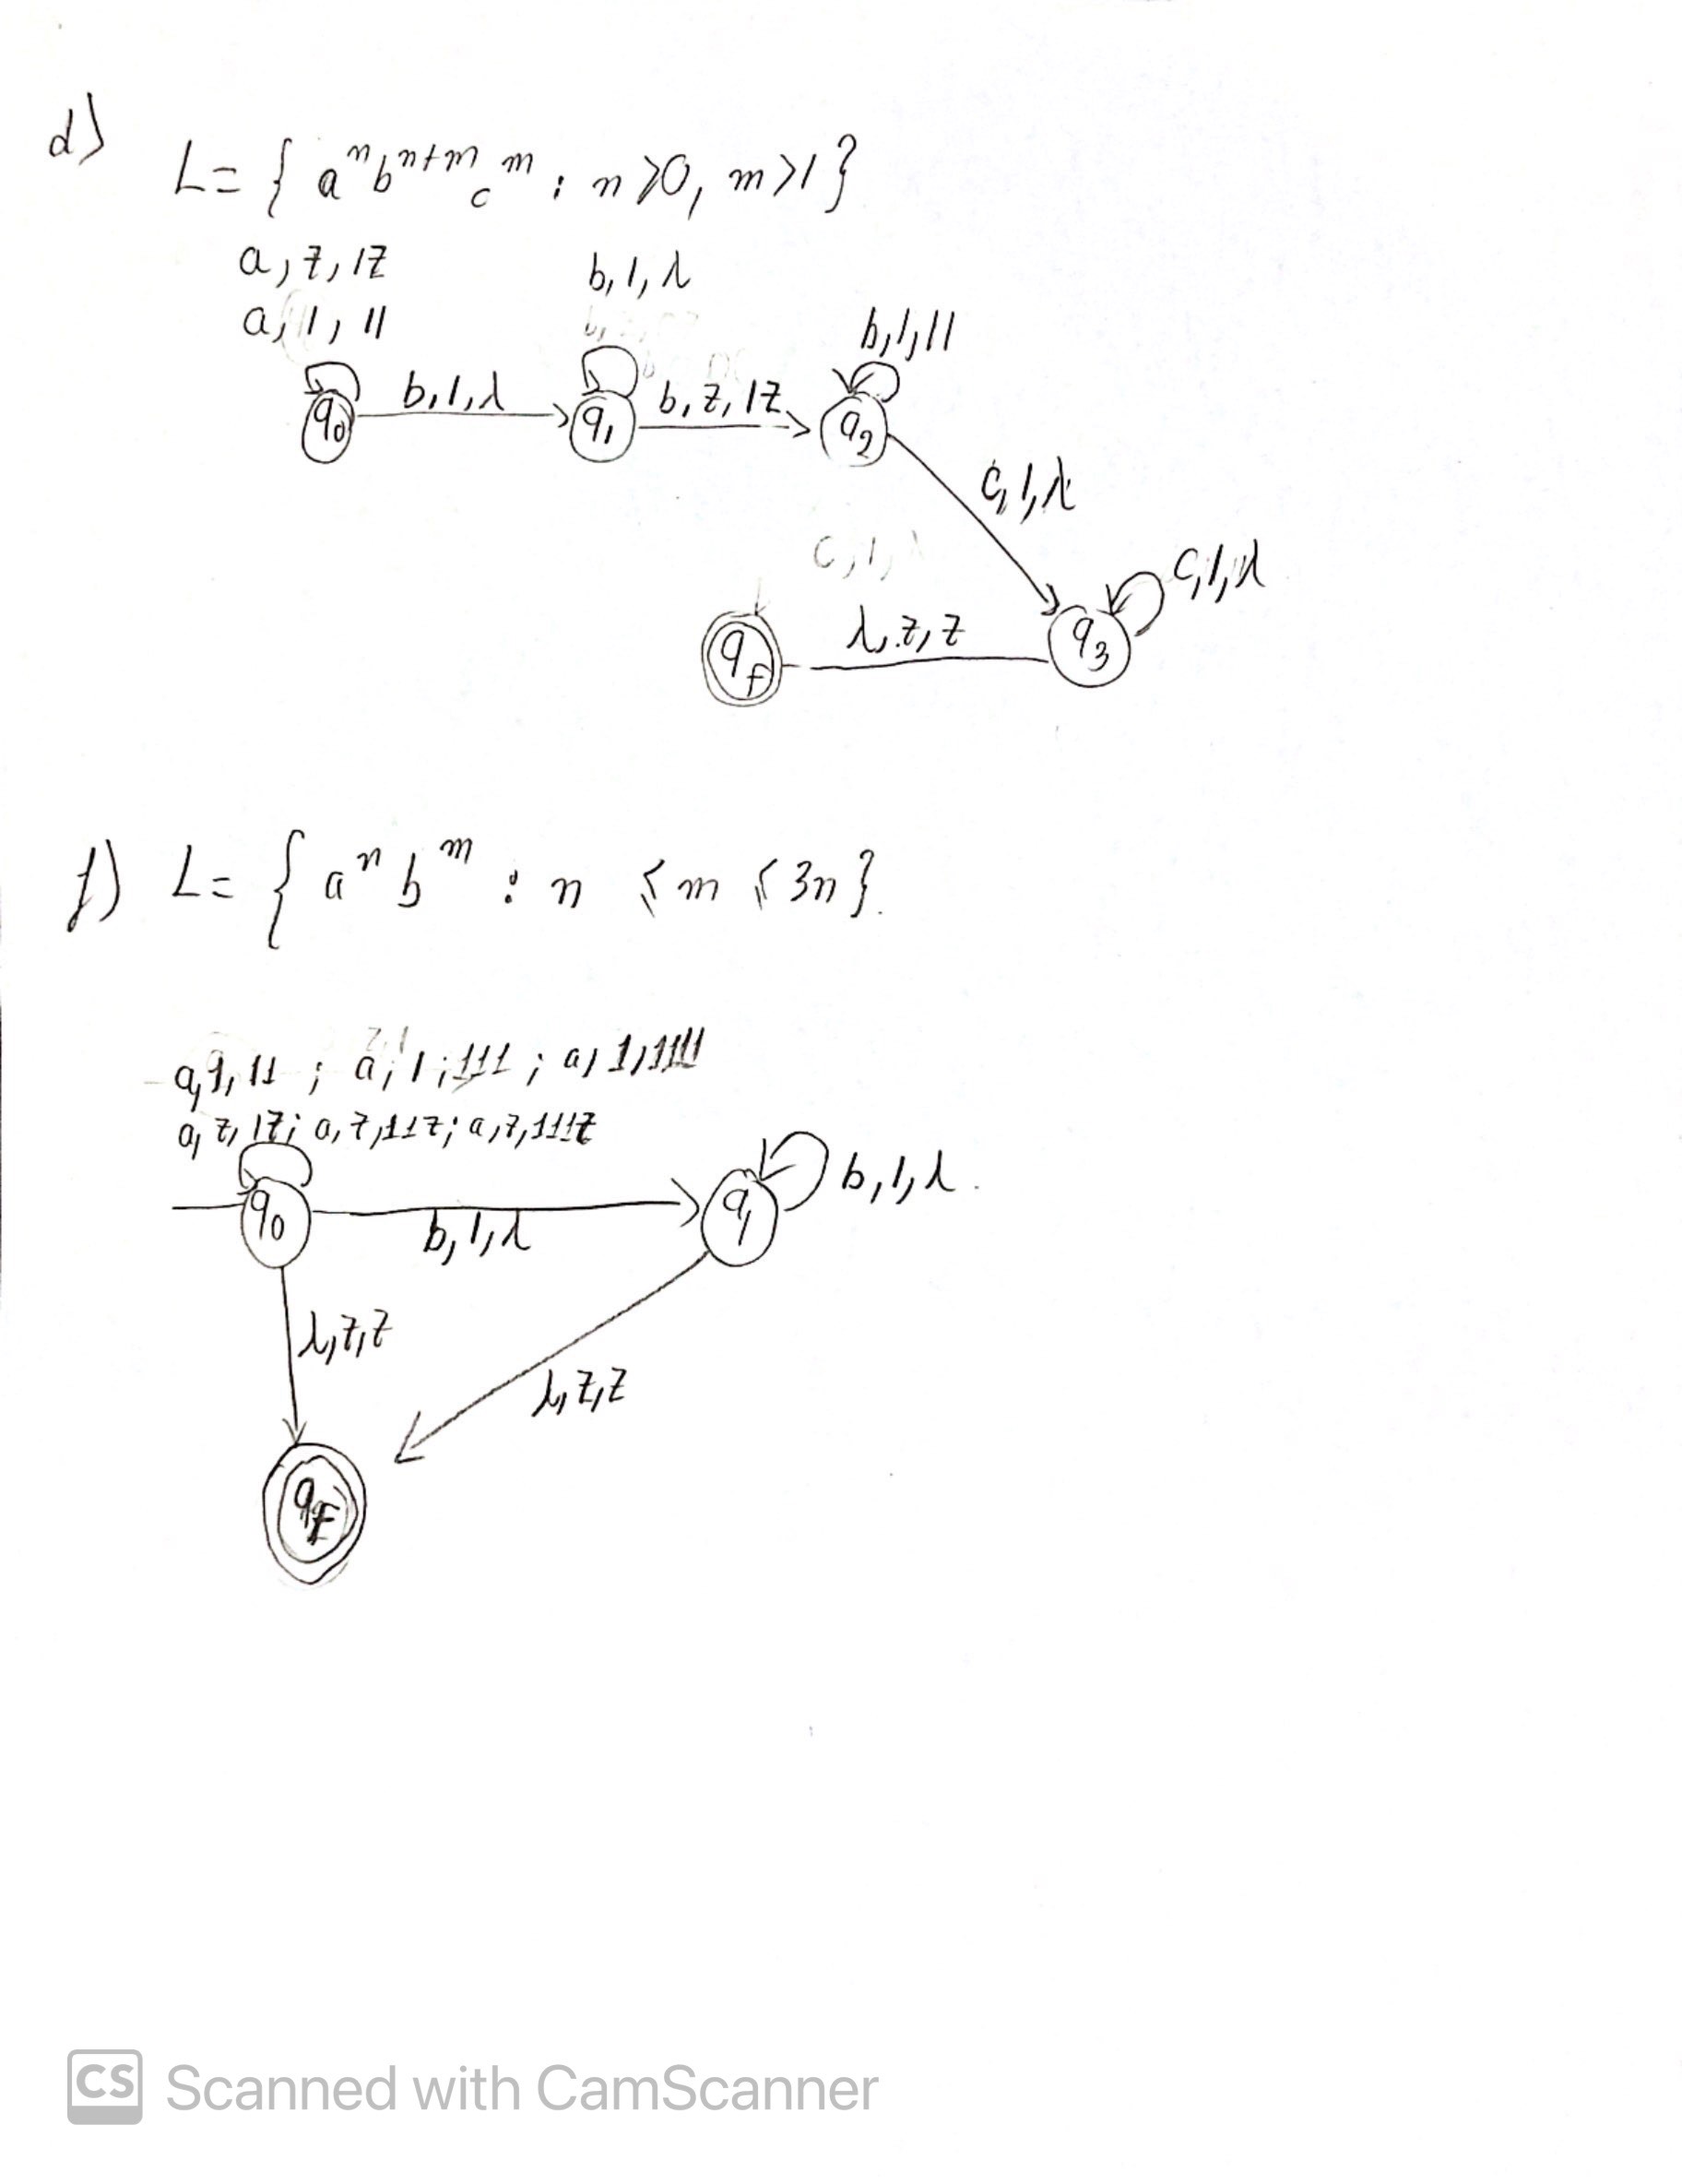 d)
L = { aⁿ bⁿ⁺ᵐ cᵐ : n > 0, m > 1 }
a, z, 1z b, 1, λ
a, 1, 11 b, 1, 11
b, 1, λ b, z, 1z
q₀ q₁ q₂
c, 1, λ
c, 1, c, 1, λ
λ, z, z
q_f q₃
f) L = { aⁿ b ᵐ : n ≤ m ≤ 3n }.
a, 1, 11 ; a, 1, 111 ; a, 1, 1111
a, z, 1z; a, z, 11z; a, z, 111z
q₀ q₁ b, 1, λ.
b, 1, λ
λ, z, z
λ, z, z
q_F
CS Scanned with CamScanner